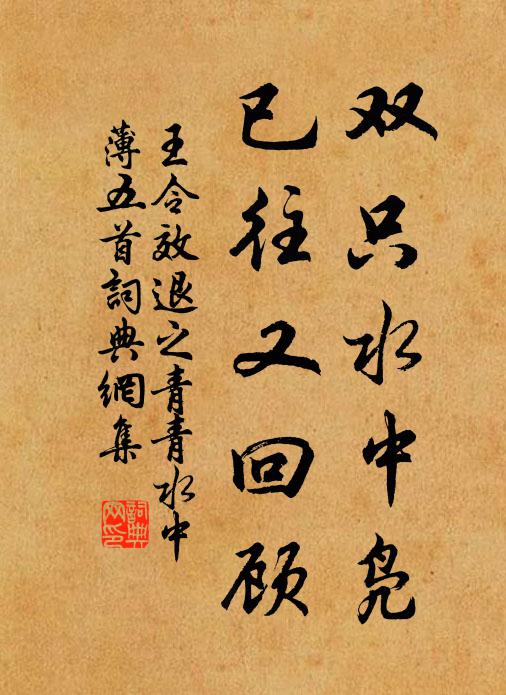 双只水中凫
已往又回顾
王令效退之青青水中
薄五首詞典網集
詞典网印